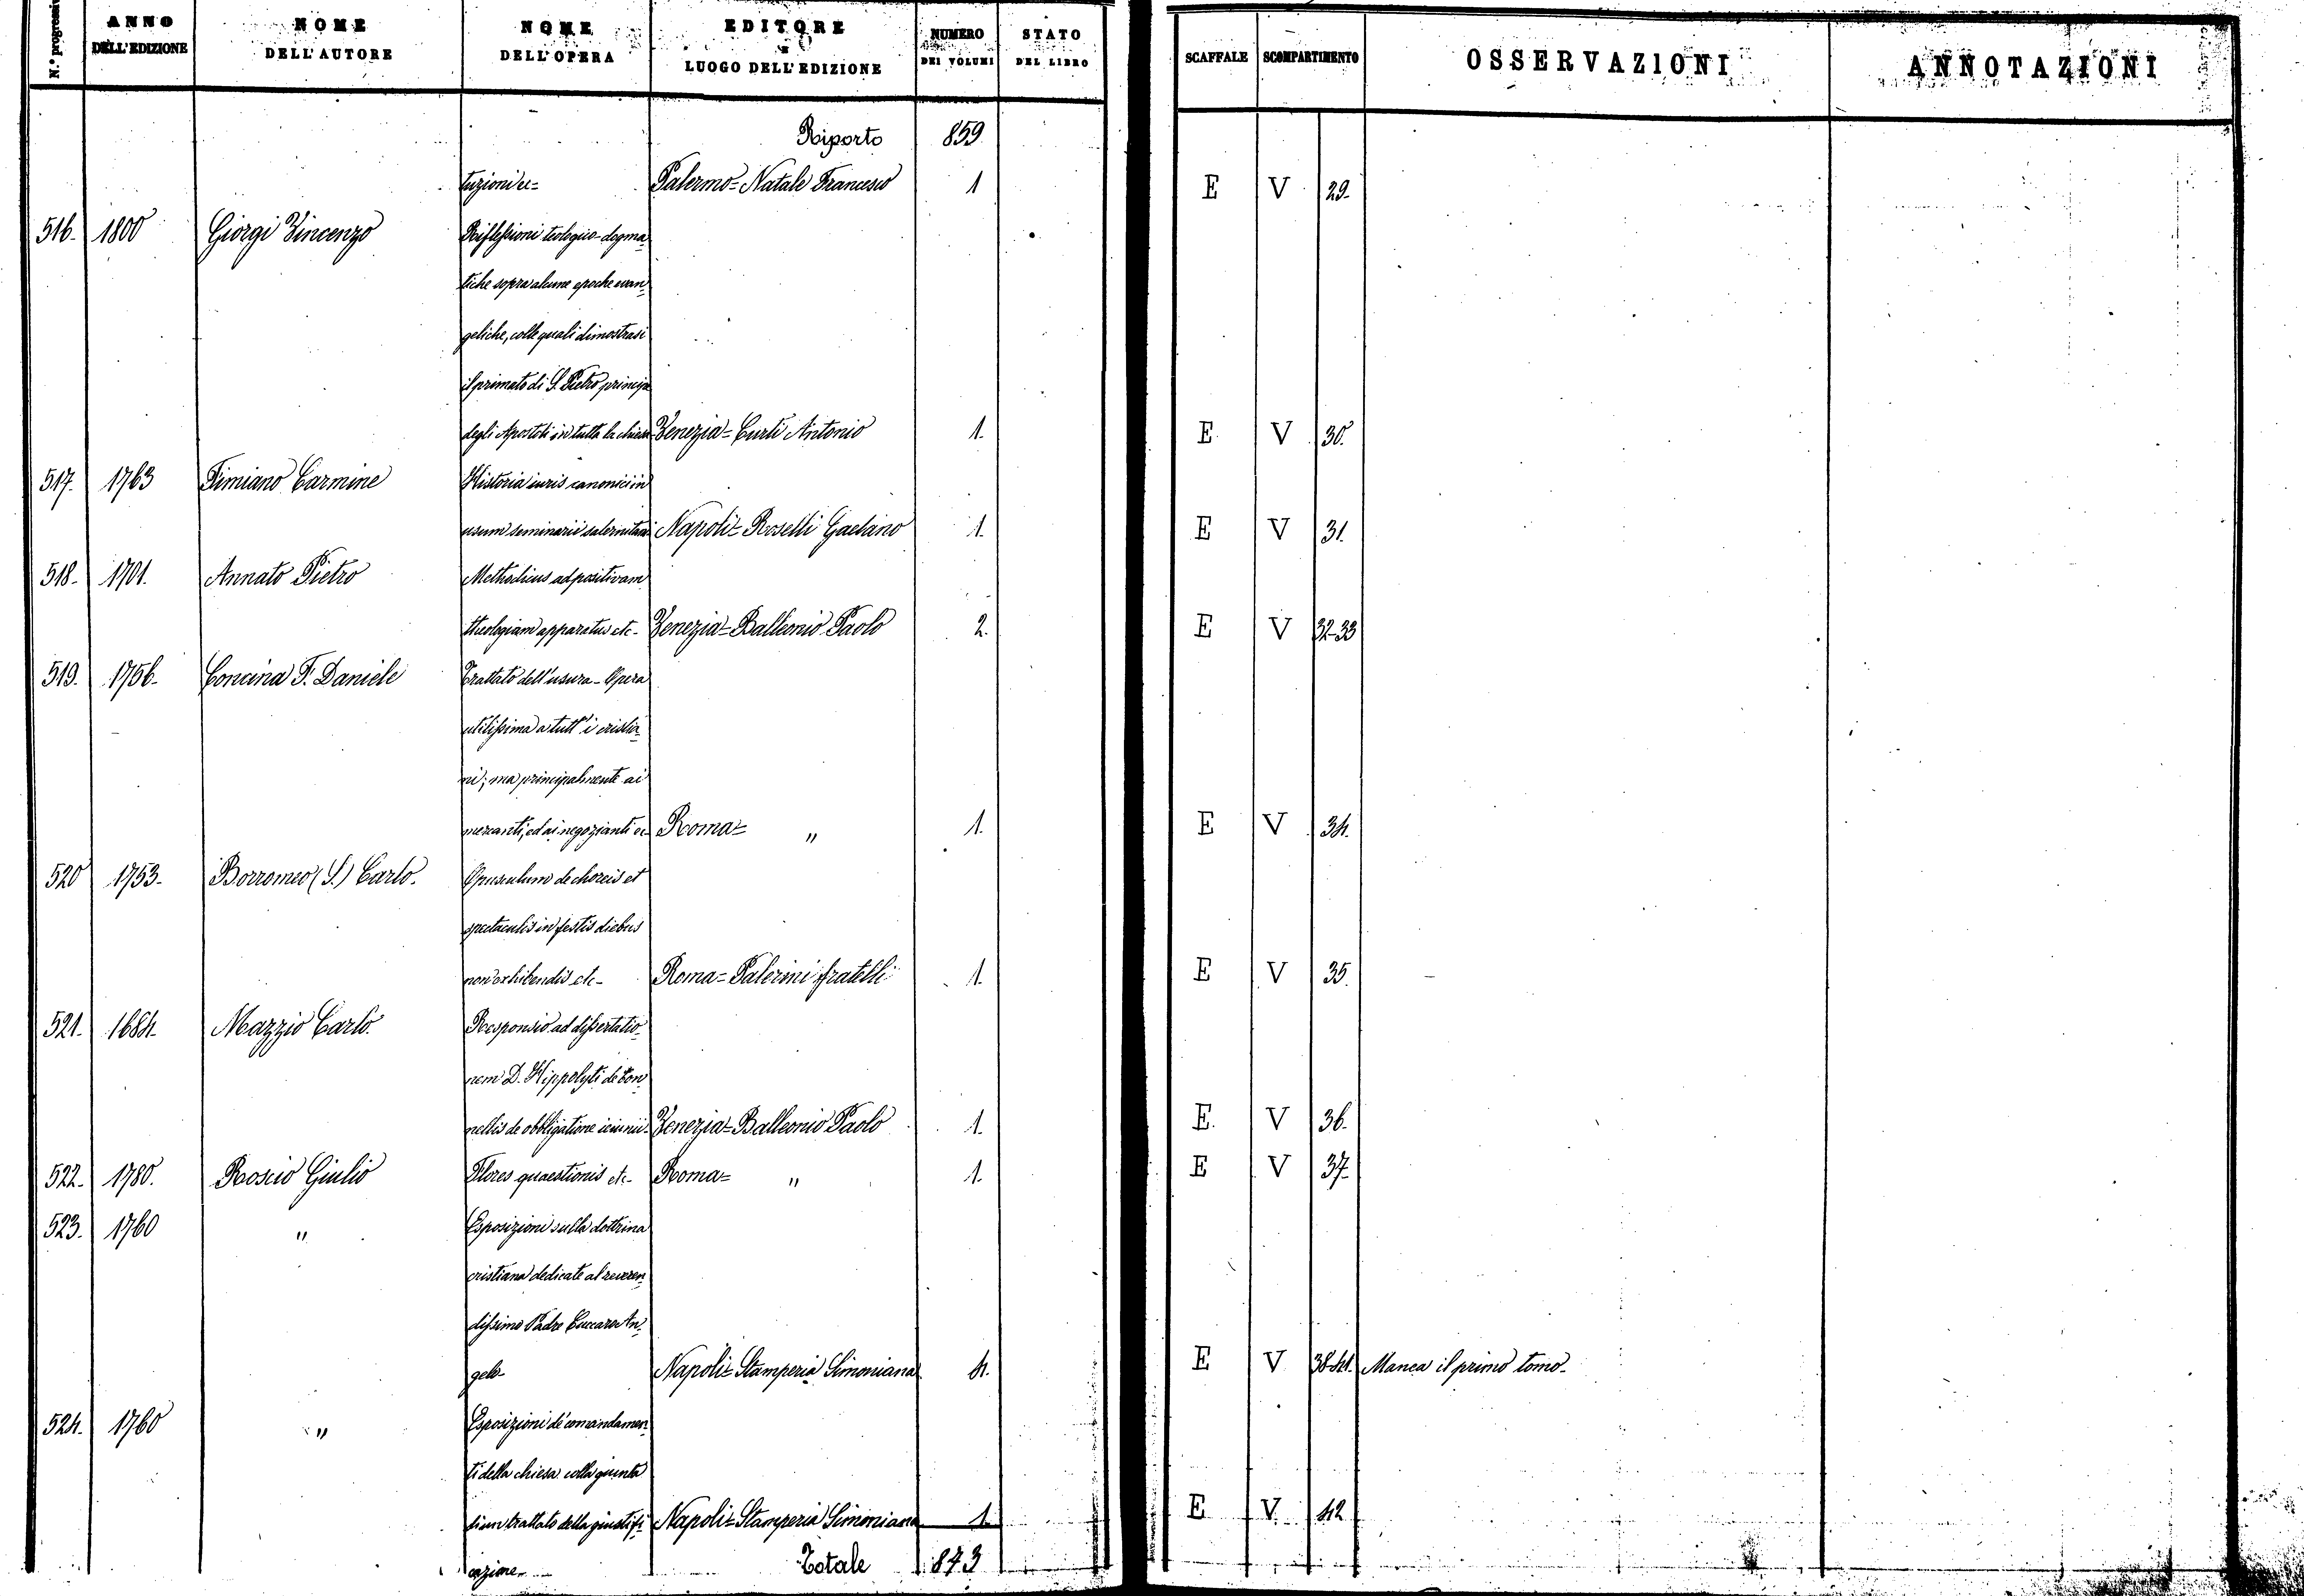 N.° progressiv | ANNO DELL'EDIZIONE | NOME DELL'AUTORE | NOME DELL'OPERA | EDITORE E LUOGO DELL'EDIZIONE | NUMERO DEI VOLUMI | STATO DEL LIBRO | SCAFFALE | SCOMPARTIMENTO | OSSERVAZIONI | ANNOTAZIONI
Riporto 859
tuzioni ec= Palermo= Natale Francesco 1 E V 29.
516. 1800 Giorgi Vincenzo Riflessioni teologico-dogma=
tiche sopra alcune epoche evan=
geliche, colle quali dimostrasi
il primato di S. Pietro principe
degli Apostoli in tutta la chiesa Venezia= Curti Antonio 1. E V 30.
517. 1763 Fimiano Carmine Historia iuris canonici in
usum seminarii salernitani Napoli= Roselli Gaetano 1. E V 31.
518. 1701. Annato Pietro Methodicus ad positivam
theologiam apparatus etc- Venezia= Balleonio Paolo 2. E V 32-33
519. 1756. Concina F. Daniele Trattato dell'usura- Opera
utilissima a tutt'i cristia=
ni; ma principalmente ai
mercanti, ed ai negozianti ec Roma= " 1. E V 34.
520 1753. Borromeo (S.) Carlo. Opusculum de choreis et
spectaculis in festis diebus
non exhibendis etc- Roma= Palerini fratelli 1. E V 35.
521. 1684. Mazzio Carlo. Responsio ad dissertatio=
nem D. Hippolyti de Ton=
nellis de obbligatione Venezia= Balleonio Paolo 1. E. V 36.
522. 1780. Roscio Giulio Flores quaestionis etc- Roma= " 1. E V 37.
523. 1760 " Esposizioni sulla dottrina
cristiana dedicate al reveren=
dissimo Padre Cuccaro An=
gelo- Napoli= Stamperia Simoniana 4. E V 38-41. Manca il primo tomo-
524. 1760 " Esposizioni de' comandamen=
ti della chiesa colla giunta
di un trattato della giustifi= Napoli= Stamperia Simoniana 1. E V 42
cazione- Totale 873